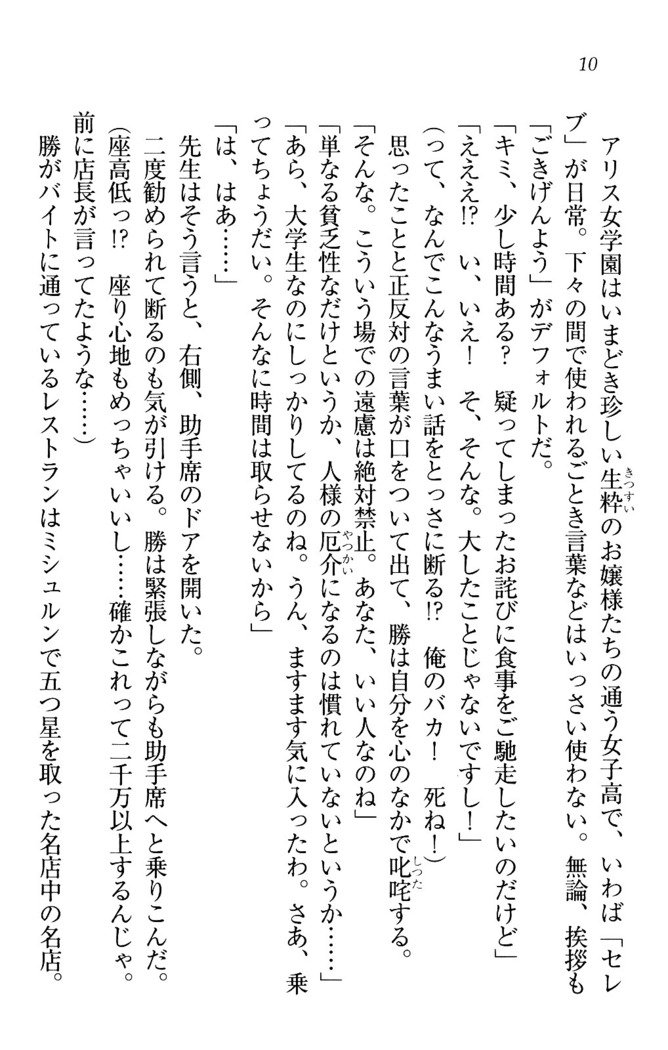 10
アリス女学園はいまどき珍しい生粋のお嬢様たちの通う女子高で、いわば「セレ
ブ」が日常。下々の間で使われるごとき言葉などはいっさい使わない。無論、挨拶も
「ごきげんよう」がデフォルトだ。
「キミ、少し時間ある？　疑ってしまったお詫びに食事をご馳走したいのだけど」
「えええ!?　い、いえ！　そ、そんな。大したことじゃないですし！」
（って、なんでこんなうまい話をとっさに断る!?　俺のバカ！　死ね！）
思ったことと正反対の言葉が口をついて出て、勝は自分を心のなかで叱咤する。
「そんな。こういう場での遠慮は絶対禁止。あなた、いい人なのね」
「単なる貧乏性なだけというか、人様の厄介になるのは慣れていないというか……」
「あら、大学生なのにしっかりしてるのね。うん、ますます気に入ったわ。さあ、乗
ってちょうだい。そんなに時間は取らせないから」
「は、はあ……」
先生はそう言うと、右側、助手席のドアを開いた。
二度勧められて断るのも気が引ける。勝は緊張しながらも助手席へと乗りこんだ。
（座高低っ!?　座り心地もめっちゃいいし……確かこれって二千万以上するんじゃ。
前に店長が言ってたような……）
勝がバイトに通っているレストランはミシュルンで五つ星を取った名店中の名店。